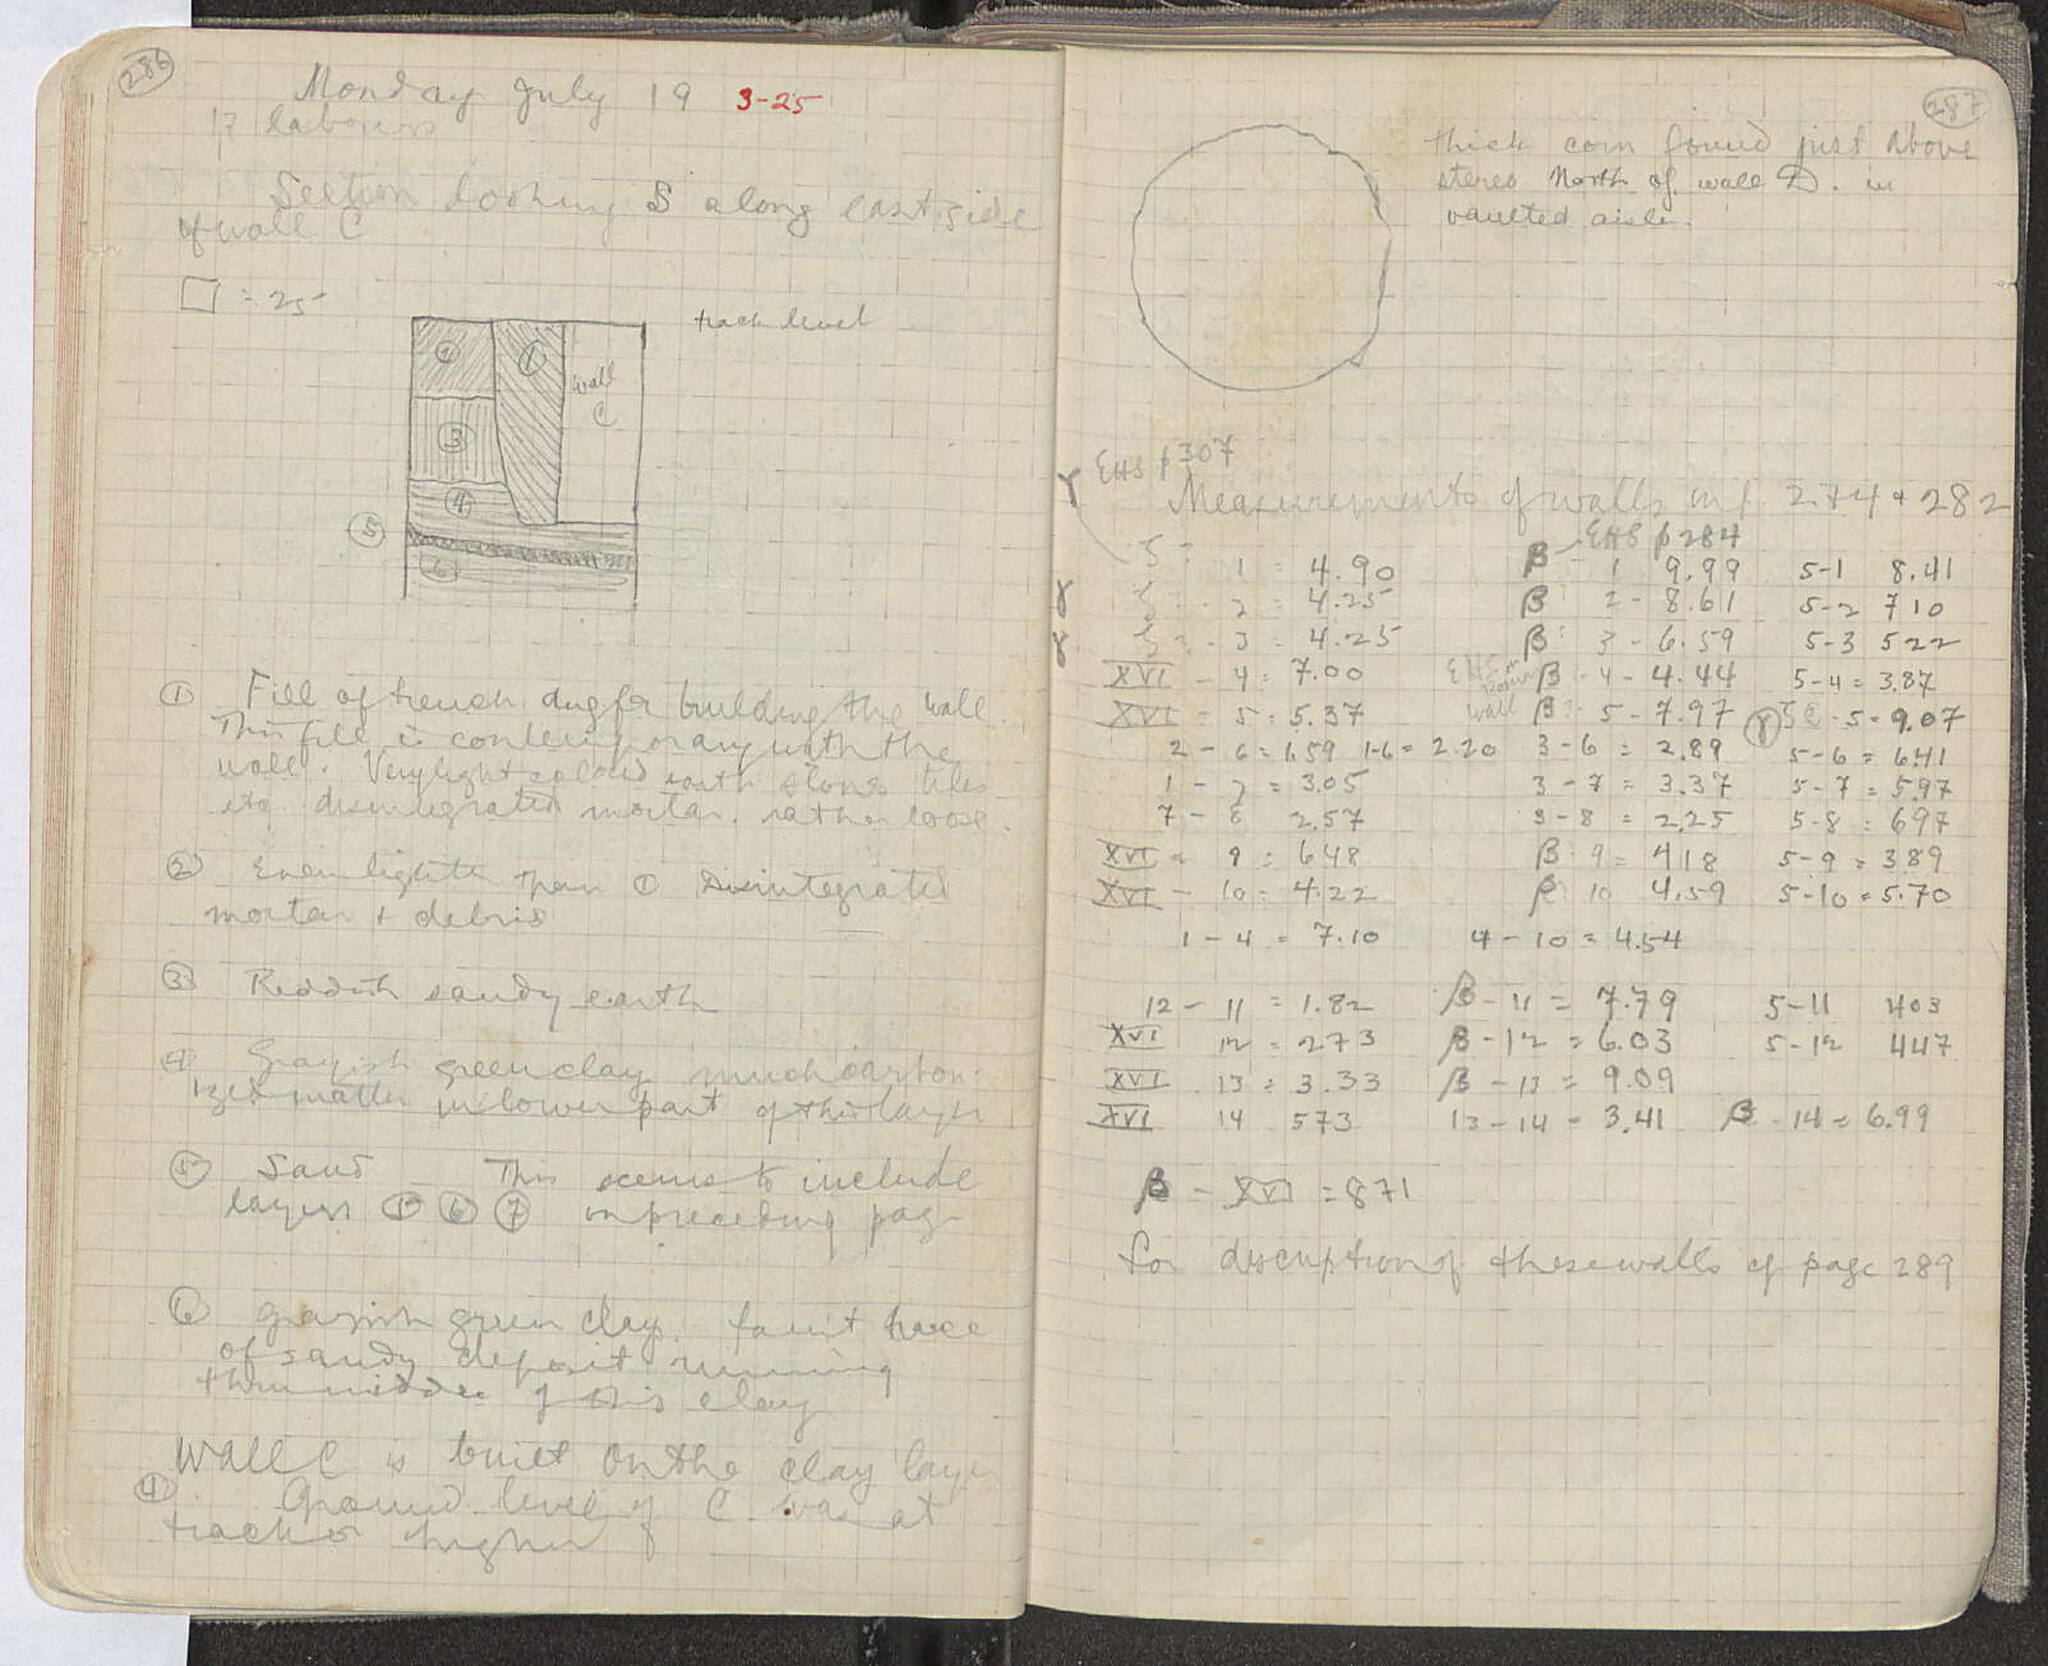 286
Monday July 19 3-25
17 labourers
Section looking S along east side
of wall C
□ = 25
track level
2
1
wall
C
3
4
5
6
① Fill of trench dug for building the wall.
This fill is contemporary with the
wall. Very light colored earth stones tiles
etc. disintegrated mortar. rather loose.
② Even lighter than ① Disintegrated
mortar + debris
③ Reddish sandy earth
④ Grayish green clay much carbon-
ized matter in lower part of this layer
⑤ Sand This seems to include
layers ⑤ ⑥ ⑦ on preceding page
⑥ Grayish green clay. faint trace
of sandy deposit running
thru middle of this clay
Wall C is built on the clay layer
④. Ground level of C. was at
track or higher
287
thick coin found just above
stereo North of wall D. in
vaulted aisle.
EHS p 307
Measurements of walls on p. 274 + 282
EHS p 284
γ 5 - 1 = 4.90 β - 1 9.99 5-1 8.41
γ 5 - 2 = 4.25 β 2 - 8.61 5-2 710
γ 5 - 3 = 4.25 β 3 - 6.59 5-3 522
XVI - 4 = 7.00 EHS on wall β - 4 - 4.44 5-4 = 3.87
XVI - 5 = 5.37 β 5 - 7.97 γ 5 = 9.07
2 - 6 = 1.59 1-6 = 2.20 3-6 = 2.89 5-6 = 6.41
1 - 7 = 3.05 3-7 = 3.37 5-7 = 5.97
7 - 8 2.57 3-8 = 2.25 5-8 = 697
XVI - 9 = 648 β 9 = 418 5-9 = 389
XVI - 10 = 4.22 β 10 4.59 5-10 = 5.70
1 - 4 = 7.10 4 - 10 = 4.54
12 - 11 = 1.82 β - 11 = 7.79 5-11 403
XVI 12 = 273 β - 12 = 6.03 5-12 447
XVI 13 = 3.33 β - 13 = 9.09
XVI 14 573 13-14 = 3.41 β - 14 = 6.99
β - XVI = 871
for description of these walls cf page 289